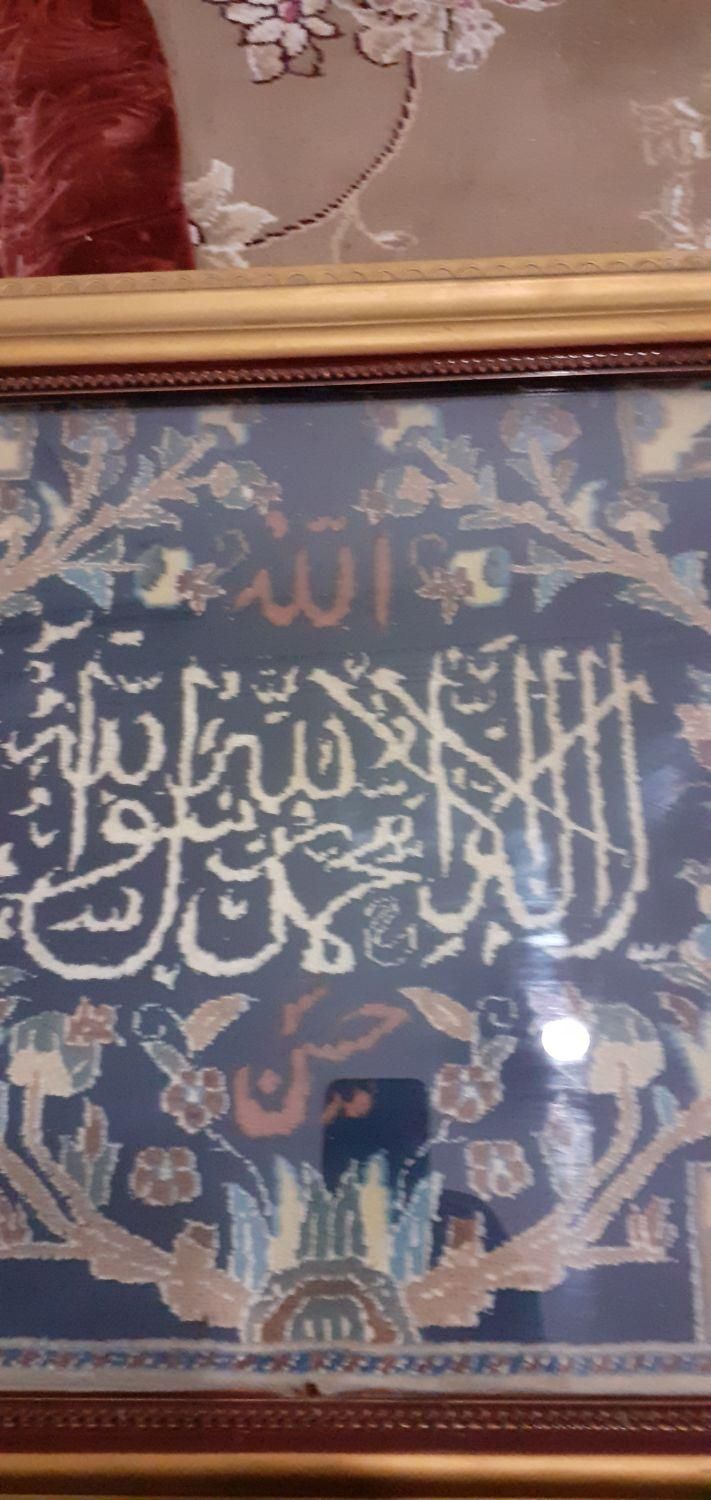 الله
لا إله إلا الله
محمد رسول الله
حسن